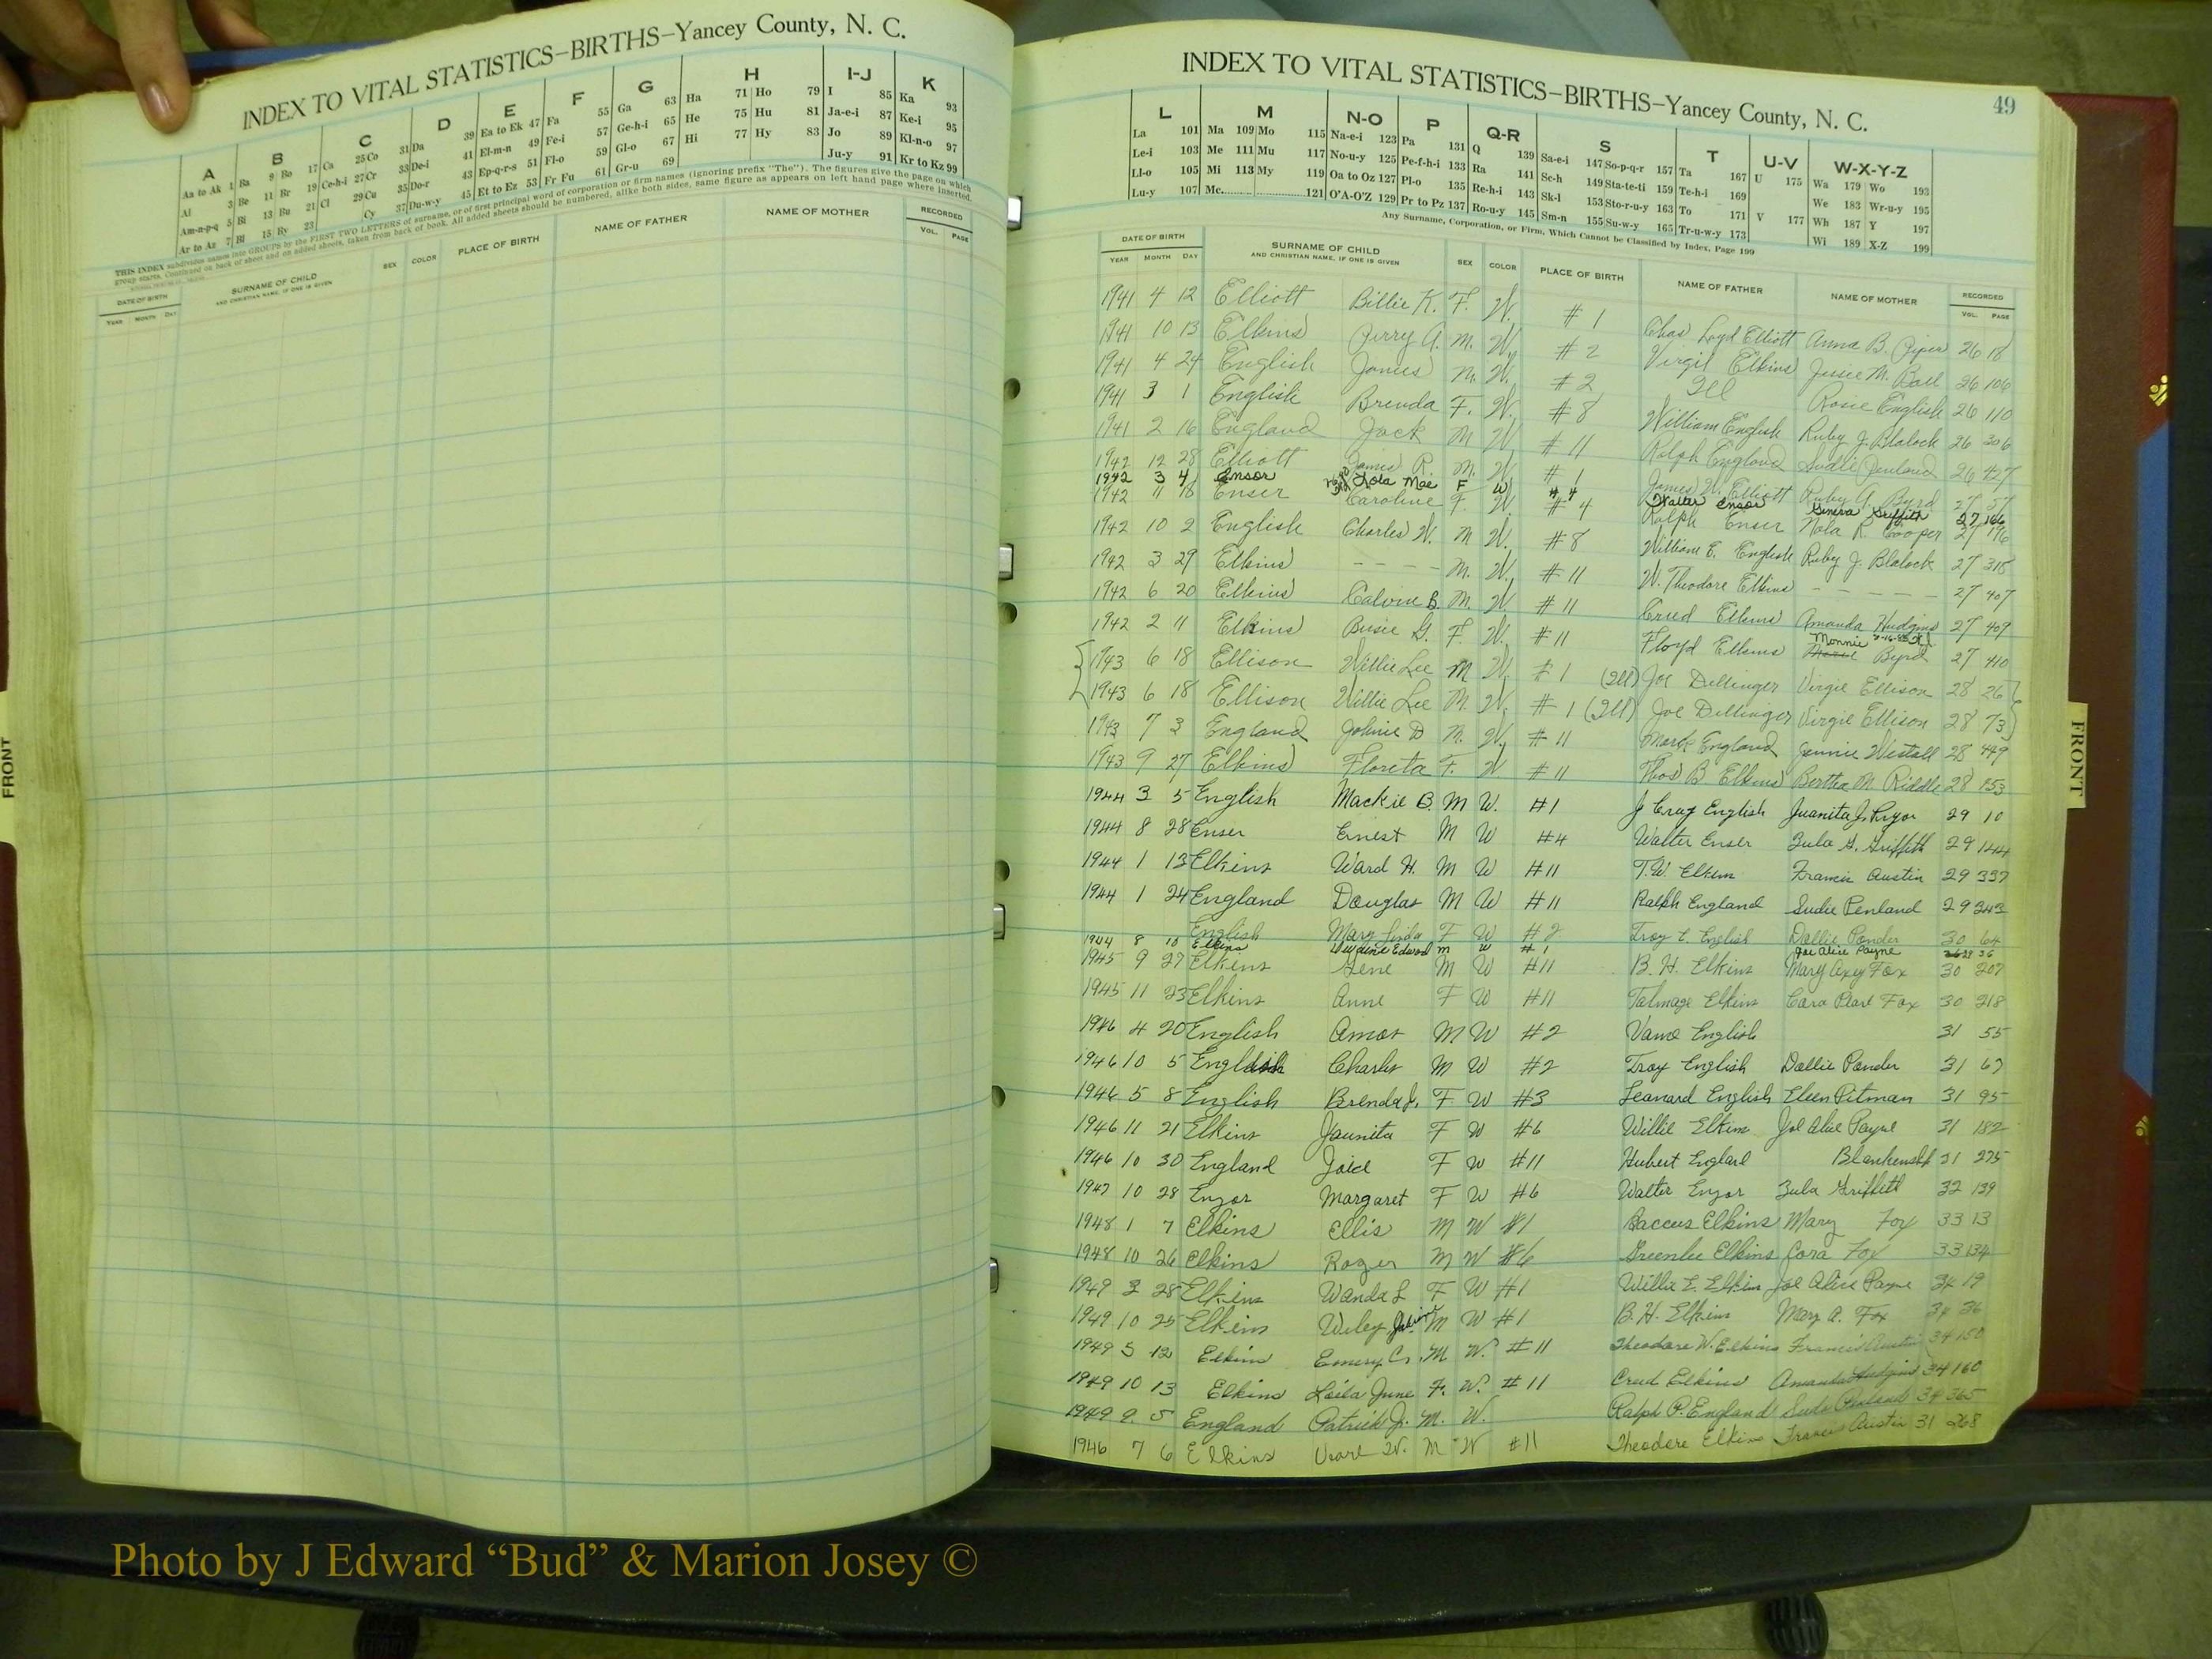 INDEX TO VITAL STATISTICS–BIRTHS–Yancey County, N. C.
A B C D E F G H I-J K
Aa to Ak 1 Ba 9 Bo 17 Ca 25 Co 31 Da 39 Ea to Ek 47 Fa 55 Ga 63 Ha 71 Ho 79 I 85 Ka 93
Al 3 Be 11 Br 19 Ce-h-i 27 Cr 33 De-i 41 El-m-n 49 Fe-i 57 Ge-h-i 65 He 75 Hu 81 Ja-e-i 87 Ke-i 95
Am-n-p-q 5 Bi 13 Bu 21 Cl 29 Cu 35 Do-r 43 Ep-q-r-s 51 Fl-o 59 Gl-o 67 Hi 77 Hy 83 Jo 89 Kl-n-o 97
Ar to Az 7 Bl 15 By 23 Cy 37 Du-w-y 45 Et to Ez 53 Fr Fu 61 Gr-u 69 Ju-y 91 Kr to Kz 99
THIS INDEX subdivides names into GROUPS by the FIRST TWO LETTERS of surname, or of first principal word of corporation or firm names (ignoring prefix "The"). The figures give the page on which
group starts. Continued on back of sheet and on added sheets, taken from back of book. All added sheets should be numbered, alike both sides, same figure as appears on left hand page where inserted.
DATE OF BIRTH SURNAME OF CHILD SEX COLOR PLACE OF BIRTH NAME OF FATHER NAME OF MOTHER RECORDED
YEAR MONTH DAY AND CHRISTIAN NAME, IF ONE IS GIVEN VOL. PAGE
FRONT
INDEX TO VITAL STATISTICS–BIRTHS–Yancey County, N. C. 49
L M N-O P Q-R S T U-V W-X-Y-Z
La 101 Ma 109 Mo 115 Na-e-i 123 Pa 131 Q 139 Sa-e-i 147 So-p-q-r 157 Ta 167 U 175 Wa 179 Wo 193
Le-i 103 Me 111 Mu 117 No-u-y 125 Pe-f-h-i 133 Ra 141 Sc-h 149 Sta-te-ti 159 Te-h-i 169 We 183 Wr-u-y 195
Ll-o 105 Mi 113 My 119 Oa to Oz 127 Pl-o 135 Re-h-i 143 Sk-l 153 Sto-r-u-y 163 To 171 V 177 Wh 187 Y 197
Lu-y 107 Mc 121 O'A-O'Z 129 Pr to Pz 137 Ro-u-y 145 Sm-n 155 Su-w-y 165 Tr-u-w-y 173 Wi 189 X-Z 199
Any Surname, Corporation, or Firm, Which Cannot be Classified by Index, Page 199
DATE OF BIRTH SURNAME OF CHILD SEX COLOR PLACE OF BIRTH NAME OF FATHER NAME OF MOTHER RECORDED
YEAR MONTH DAY AND CHRISTIAN NAME, IF ONE IS GIVEN VOL. PAGE
1941 4 12 Elliott Billie K. F. W. #1 Chas Loyd Elliott Anna B. Piper 26 18
1941 10 13 Elkins Perry A. M. W. #2 Virgil Elkins Jessie M. Ball 26 106
1941 4 24 English James M. W. #2 Ill Rosie English 26 110
1941 3 1 English Brenda F. W. #8 William English Ruby J. Blalock 26 306
1941 2 16 England Jack M W #11 Ralph England Sudie Penland 26 427
1942 12 28 Elliott James R. M. W #1 James W. Elliott Ruby A. Byrd 27 57
1942 3 4 Ensor Lola Mae F W #4 Walter Ensor Geneva Griffith 27 166
1942 11 18 Enser Caroline F. W. #4 Ralph Enser Nola R. Cooper 27 196
1942 10 2 English Charles W. M W. #8 William E. English Ruby J. Blalock 27 315
1942 3 29 Elkins – – – – M. W. #11 W. Theodore Elkins – – – – – 27 407
1942 6 20 Elkins Calvin B. M. W #11 Creed Elkins Amanda Hudgins 27 409
1942 2 11 Elkins G. F. W. #11 Floyd Elkins Monnie Byrd 27 410
1943 6 18 Ellison Willie Lee M W. #1 (Ill) Joe Dellinger Virgie Ellison 28 26
1943 6 18 Ellison Willie Lee M. W. #1 (Ill) Joe Dellinger Virgie Ellison 28 73
1943 7 3 England Johnie D M. W. #11 Mark England Jennie Westall 28 449
1943 9 27 Elkins Floreta F. W. #11 Thos B Elkins Bertha M. Riddle 28 453
1944 3 5 English Mackie B. M W. #1 J Craig English Juanita J. Pryor 29 10
1944 8 28 Enser Ernest M W #4 Walter Enser Zula G. Griffith 29 144
1944 1 13 Elkins Ward H. M W #11 T.W. Elkins Francis Austin 29 337
1944 1 24 England Douglas M W #11 Ralph England Sudie Penland 29 343
English Mary Linda F W #2 Troy C. English Dollie Ponder 30 64
1944 8 10 Elkins Edward M W #1 Joe Alice Payne 36
1945 9 27 Elkins Gene M W #11 B. H. Elkins Mary Axy Fox 30 207
1945 11 23 Elkins Anne F W #11 Talmage Elkins Cora Pearl Fox 30 218
1946 4 20 English Amos M W #2 Vance English 31 55
1946 10 5 English Charles M W #2 Troy English Dollie Ponder 31 67
1946 5 8 English Brenda J. F W #3 Leonard English Eleen Pitman 31 95
1946 11 21 Elkins Jaunita F W #6 Willie Elkins Joe Alice Payne 31 182
1946 10 30 England Joice F W #11 Hubert England Blankenship 31 275
1947 10 28 Enzor Margaret F W #6 Walter Enzor Zula Griffith 32 139
1948 1 7 Elkins Ellis M W #1 Baccus Elkins Mary Fox 33 13
1948 10 26 Elkins Roger M W #6 Greenlee Elkins Cora Fox 33 134
1949 3 28 Elkins Wanda L F W #1 Willie E. Elkins Joe Alice Payne 34 19
1949 10 25 Elkins Wiley Junior M W #1 B. H. Elkins Mary A. Fox 34 36
1949 5 12 Elkins Emery C. M W. #11 Theodore W. Elkins Francis Austin 34 150
1949 10 13 Elkins Loila June F. W. #11 Creed Elkins Amanda Hudgins 34 160
1949 9 5 England Patrick J. M. W. Ralph P. England Sude Penland 34 365
1946 7 6 Elkins W. M W #11 Theodore Elkins Frances Austin 31 268
FRONT
Photo by J Edward “Bud” & Marion Josey ©